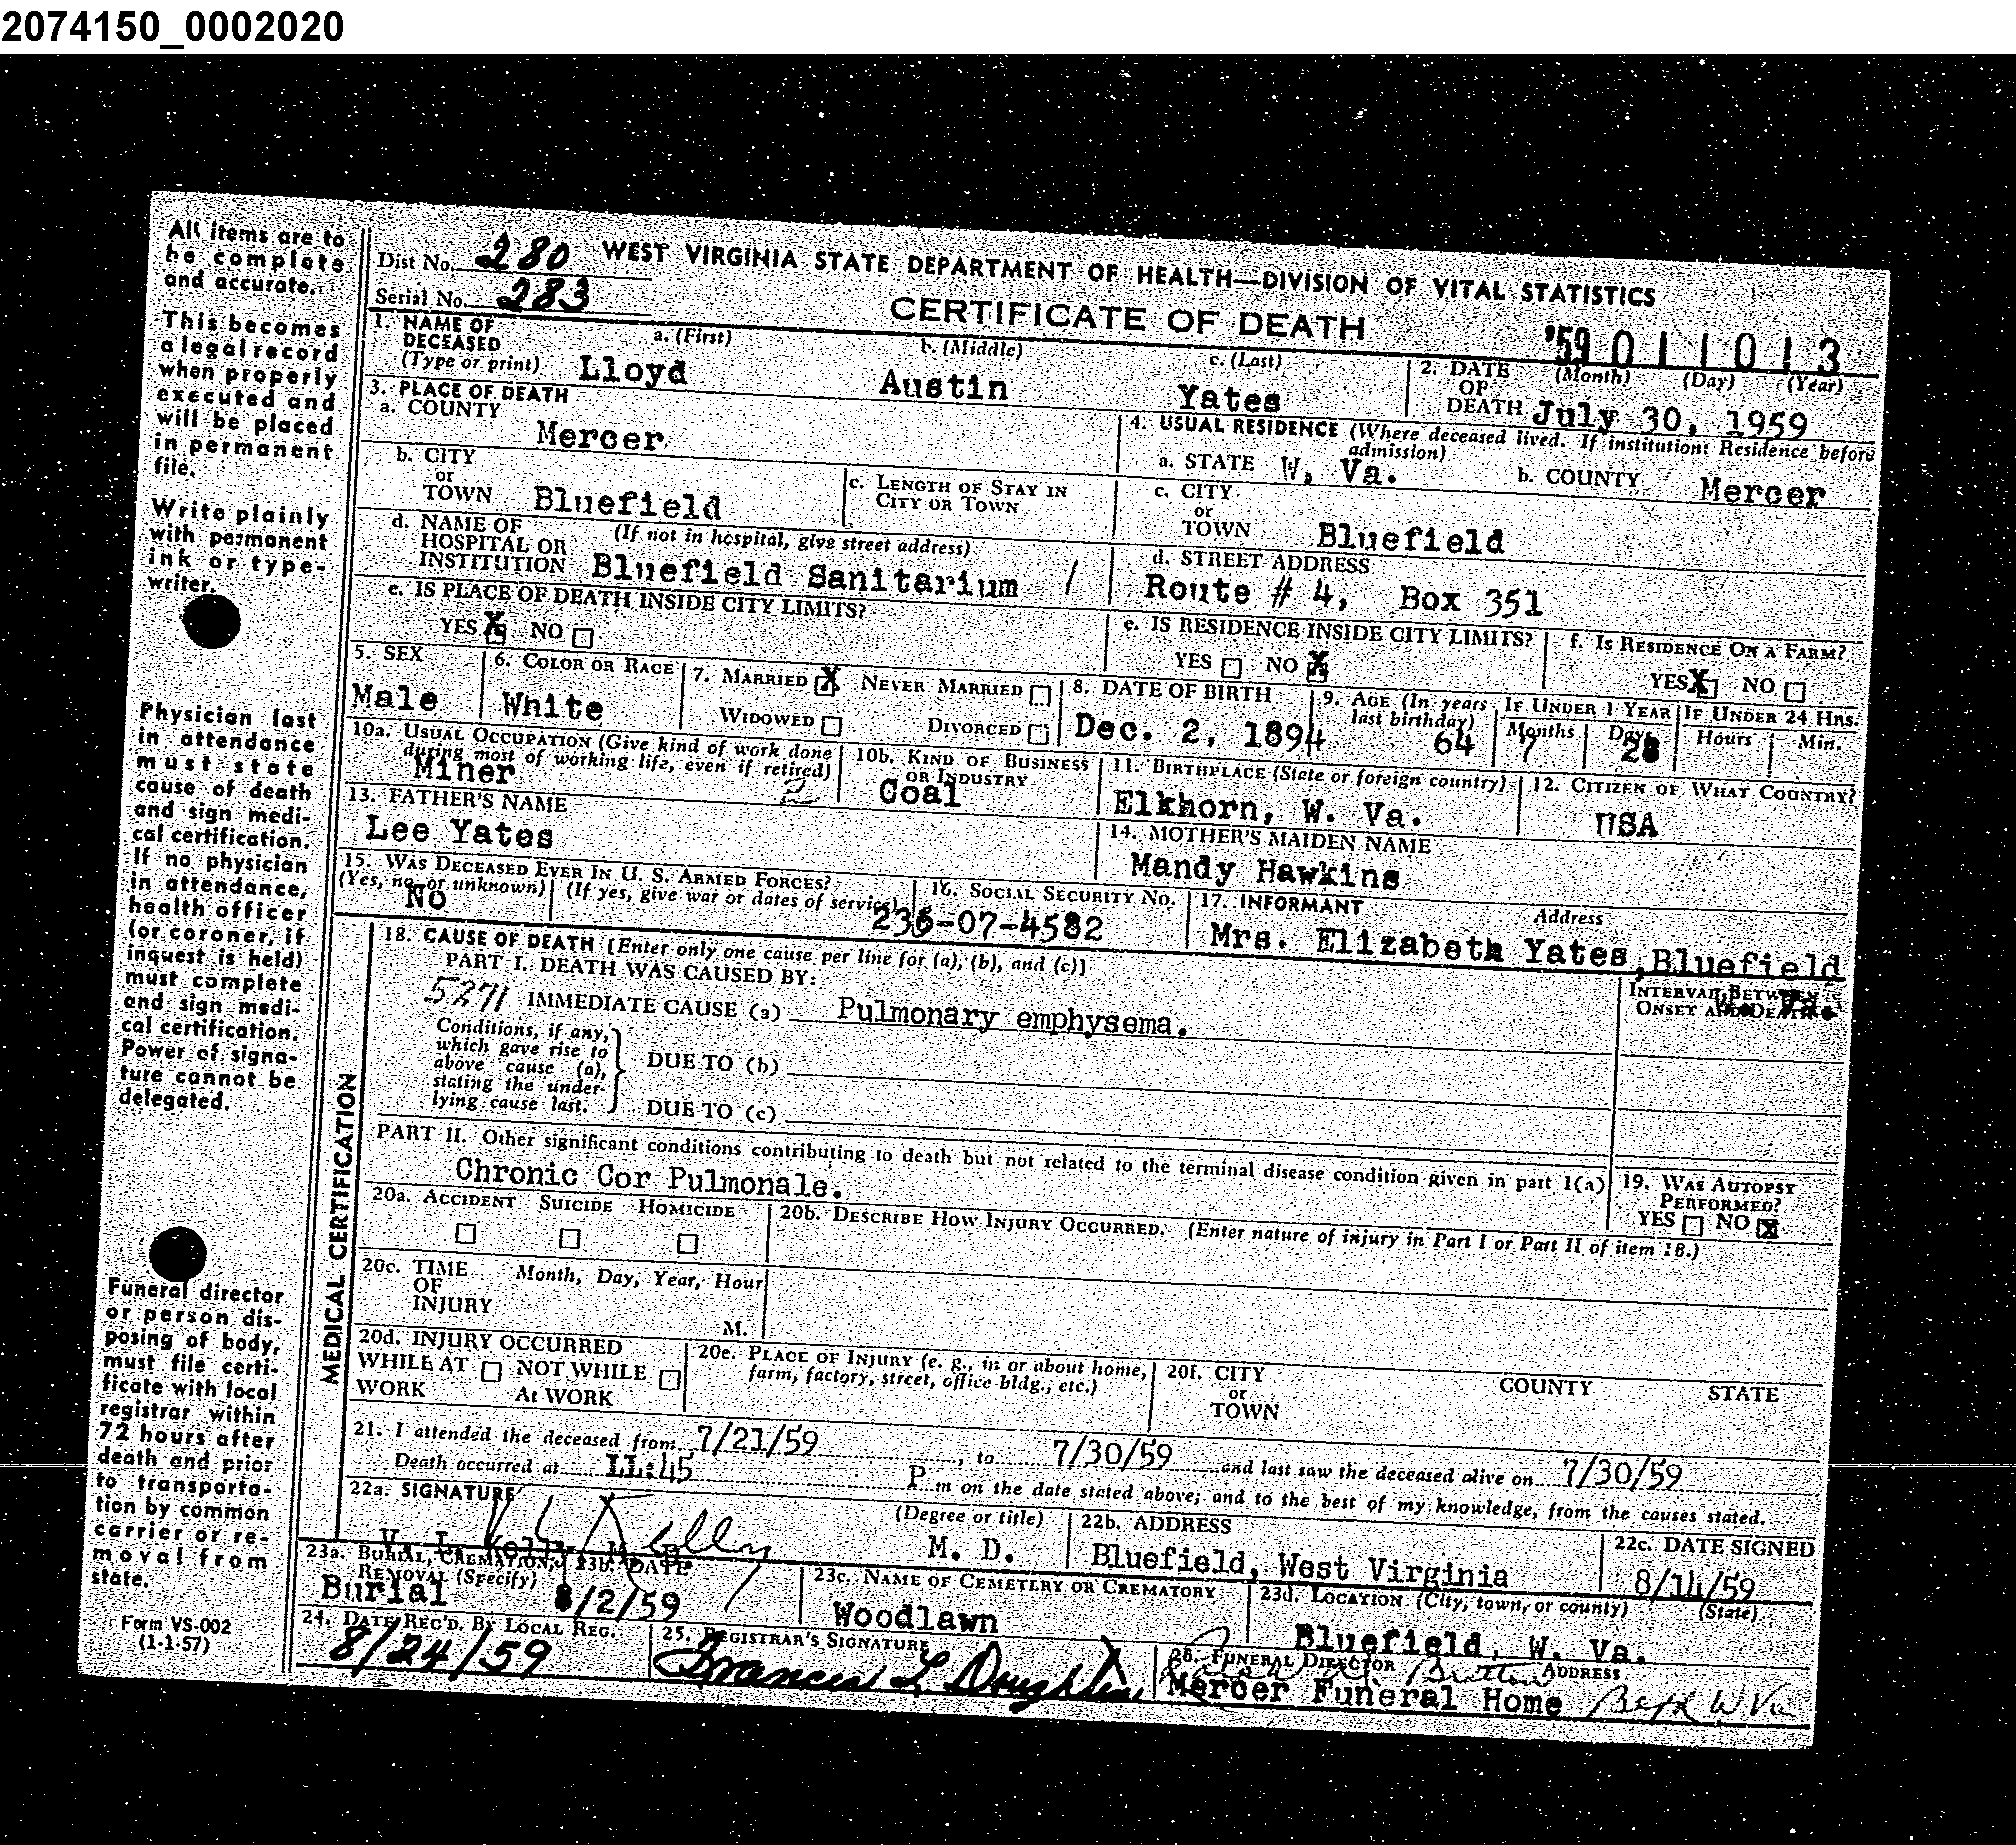 2074150_0002020
All items are to
be complete
and accurate.
This becomes
a legal record
when properly
executed and
will be placed
in permanent
file.
Write plainly
with permanent
ink or type-
writer.
Physician last
in attendance
must state
cause of death
and sign medi-
cal certification.
If no physician
in attendance,
health officer
(or coroner, if
inquest is held)
must complete
and sign medi-
cal certification.
Power of signa-
ture cannot be
delegated.
Funeral director
or person dis-
posing of body,
must file certi-
ficate with local
registrar within
72 hours after
death and prior
to transporta-
tion by common
carrier or re-
moval from
state.
Form VS-002
(1-1-57)
Dist No. 280 WEST VIRGINIA STATE DEPARTMENT OF HEALTH—DIVISION OF VITAL STATISTICS
Serial No. 283 CERTIFICATE OF DEATH '59 011013
1. NAME OF DECEASED (Type or print) a. (First) b. (Middle) c. (Last)
Lloyd Austin Yates
2. DATE OF DEATH (Month) (Day) (Year)
July 30, 1959
3. PLACE OF DEATH
a. COUNTY Mercer
4. USUAL RESIDENCE (Where deceased lived. If institution: Residence before admission)
a. STATE W. Va. b. COUNTY Mercer
b. CITY or TOWN Bluefield
c. LENGTH OF STAY IN CITY OR TOWN
c. CITY or TOWN Bluefield
d. NAME OF HOSPITAL OR INSTITUTION (If not in hospital, give street address)
Bluefield Sanitarium /
d. STREET ADDRESS
Route # 4, Box 351
e. IS PLACE OF DEATH INSIDE CITY LIMITS?
YES X NO
e. IS RESIDENCE INSIDE CITY LIMITS?
YES NO X
f. IS RESIDENCE ON A FARM?
YES X NO
5. SEX
Male
6. COLOR OR RACE
White
7. MARRIED X NEVER MARRIED
WIDOWED DIVORCED
8. DATE OF BIRTH
Dec. 2, 1894
9. AGE (In years last birthday)
64
IF UNDER 1 YEAR
Months Days
7 28
IF UNDER 24 HRS.
Hours Min.
10a. USUAL OCCUPATION (Give kind of work done during most of working life, even if retired)
Miner 2
10b. KIND OF BUSINESS OR INDUSTRY
Coal
11. BIRTHPLACE (State or foreign country)
Elkhorn, W. Va.
12. CITIZEN OF WHAT COUNTRY?
USA
13. FATHER'S NAME
Lee Yates
14. MOTHER'S MAIDEN NAME
Mandy Hawkins
15. WAS DECEASED EVER IN U. S. ARMED FORCES?
(Yes, no, or unknown) (If yes, give war or dates of service)
No
16. SOCIAL SECURITY NO.
236-07-4582
17. INFORMANT Address
Mrs. Elizabeth Yates, Bluefield
W. Va.
MEDICAL CERTIFICATION
18. CAUSE OF DEATH [Enter only one cause per line for (a), (b), and (c)]
PART I. DEATH WAS CAUSED BY:
5271 IMMEDIATE CAUSE (a) Pulmonary emphysema.
INTERVAL BETWEEN ONSET AND DEATH
Conditions, if any,
which gave rise to
above cause (a),
stating the under-
lying cause last.
DUE TO (b)
DUE TO (c)
PART II. Other significant conditions contributing to death but not related to the terminal disease condition given in part I(a)
Chronic Cor Pulmonale.
19. WAS AUTOPSY PERFORMED?
YES NO X
20a. ACCIDENT SUICIDE HOMICIDE
20b. DESCRIBE HOW INJURY OCCURRED. (Enter nature of injury in Part I or Part II of item 18.)
20c. TIME OF INJURY Month, Day, Year, Hour
M.
20d. INJURY OCCURRED
WHILE AT WORK NOT WHILE At WORK
20e. PLACE OF INJURY (e. g., in or about home, farm, factory, street, office bldg., etc.)
20f. CITY or TOWN COUNTY STATE
21. I attended the deceased from 7/21/59, to 7/30/59 and last saw the deceased alive on 7/30/59
Death occurred at 11:45 P m on the date stated above; and to the best of my knowledge, from the causes stated.
22a. SIGNATURE (Degree or title)
V L Kelly
V. L. Kelly, M. D. M. D.
22b. ADDRESS
Bluefield, West Virginia
22c. DATE SIGNED
8/14/59
23a. BURIAL, CREMATION, REMOVAL (Specify)
Burial
23b. DATE
8/2/59
23c. NAME OF CEMETERY OR CREMATORY
Woodlawn
23d. LOCATION (City, town, or county) (State)
Bluefield, W. Va.
24. DATE REC'D. BY LOCAL REG.
8/24/59
25. REGISTRAR'S SIGNATURE
Frances L
26. FUNERAL DIRECTOR ADDRESS
Mercer Funeral Home W Va